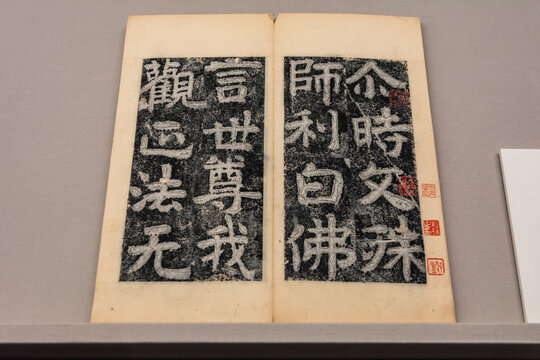 尒時文殊
師利白佛
言世尊我
觀正法无